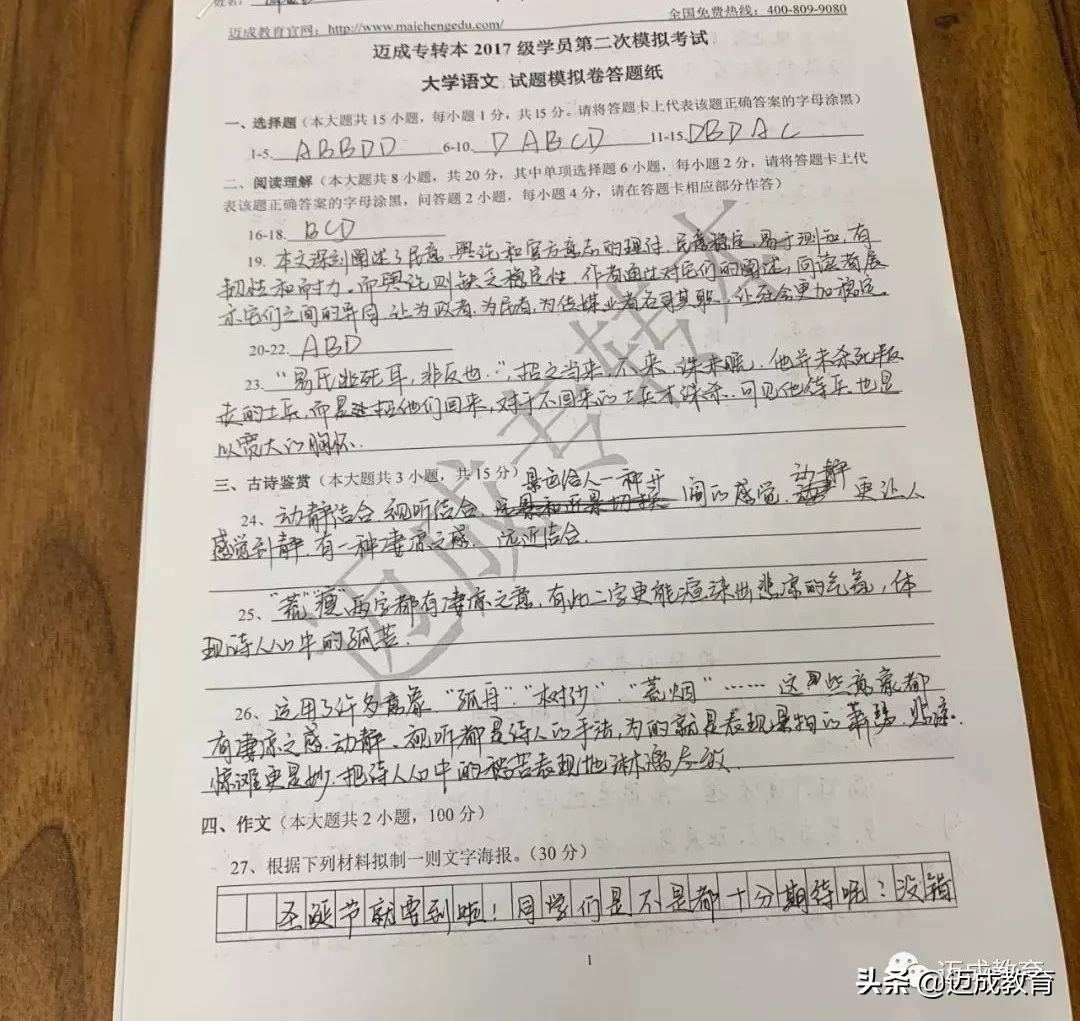 姓名:
迈成教育官网: http://www.maichengedu.com/ 全国免费热线: 400-809-9080
迈成专转本 2017 级学员第二次模拟考试
大学语文 试题模拟卷答题纸
一、选择题（本大题共 15 小题，每小题 1 分，共 15 分。请将答题卡上代表该题正确答案的字母涂黑）
1-5. ABBDD 6-10. DABCD 11-15. DBDAC
二、阅读理解（本大题共 8 小题，共 20 分，其中单项选择题 6 小题，每小题 2 分，请将答题卡上代
表该题正确答案的字母涂黑，问答题 2 小题，每小题 4 分，请在答题卡相应部分作答）
16-18. BCD
19. 本文深刻阐述了民意、舆论和官方意志的理解，民意稳定，易于测知，有
韧性和耐力，而舆论则缺乏稳定性。作者通过对它们的阐述，向读者展
示它们之间的异同，让为政者、为民者、为传媒业者各司其职，让社会更加稳定。
20-22. ABD
23. “易氏非死耳，非反也。”招之当来，不来，诛未晚。他并未杀死叛
去的士兵，而是招他们回来，对于不回来的士兵才诛杀。可见他待兵也是
以宽大的胸怀。
三、古诗鉴赏（本大题共 3 小题，共 15 分）
24、动静结合，视听结合。景色给人一种开阔的感觉，动静更让人
感觉到静，有一种凄凉之感。远近结合。
25、“荒”“瘦”两字都有凄凉之意，有此二字更能渲染出悲凉的气氛，体
现诗人心中的孤苦。
26、运用了许多意象，“孤舟”“树沙”、“荒烟”……这些意象都
有凄凉之感。动静、视听都是诗人的手法，为的就是表现景物的萧瑟、悲凉。
惊滩更是妙，把诗人心中的愁苦表现地淋漓尽致。
四、作文（本大题共 2 小题，100 分）
27、根据下列材料拟制一则文字海报。（30 分）
圣诞节就要到啦！同学们是不是都十分期待呢？没错
1
迈成专转本
迈成教育
头条 @迈成教育